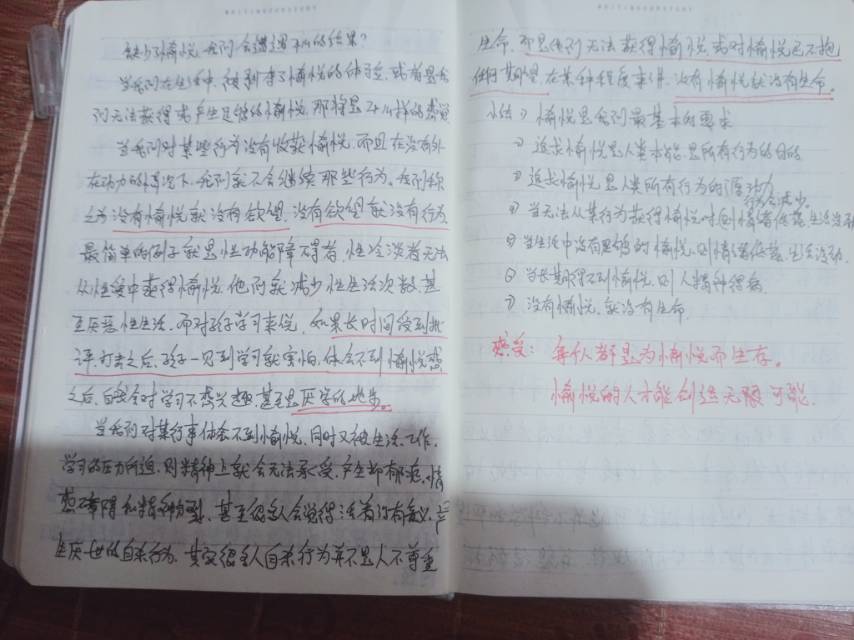 缺少了愉悦,我们会遭遇怎样的结果?
当我们在生活中,得到了愉悦的体验,或者是我
们无法获得或产生足够的愉悦,那将是怎么样的感觉
当我们对某些行为没有收获愉悦,而且在没有外
在动力的情况下,我们就不会继续那些行为。我们称
之为没有愉悦就没有欲望,没有欲望就没有行为
最简单的例子就是性功能障碍者,性冷淡者无法
从性爱中获得愉悦,他们就减少性生活次数,甚
至厌恶性生活。而对孩子学习来说,如果长时间受到批
评、打击之后,孩子一见到学习就害怕,体会不到愉悦感
之后,自然会对学习不感兴趣,甚至是厌学的地步。
当我们对某行事体会不到愉悦,同时又被生活、工作、
学习的压力所迫,则精神上就会无法承受,产生抑郁症,情
感障碍和精神,甚至很多人会觉得活着没有意义,产
生厌世的自杀行为,其实很多人自杀行为并不是人不尊重
生命,而是他们无法获得愉悦,或对愉悦已不抱
任何期望,在某种程度来讲,没有愉悦就没有生命。
小结 1) 愉悦是我们最基本的要求
2) 追求愉悦是人类本能,是所有行为的目的
3) 追求愉悦是人类所有行为的源动力
行为会减少。
4) 当无法从某行为获得愉悦时,则情绪低落,生活没动
5) 当生活中没有足够的愉悦,则情绪低落,生活没动.
6) 当长期得不到愉悦,则人精神得病
7) 没有愉悦,就没有生命.
感受: 每个人都是为愉悦而生存。
愉悦的人才能创造无限可能.